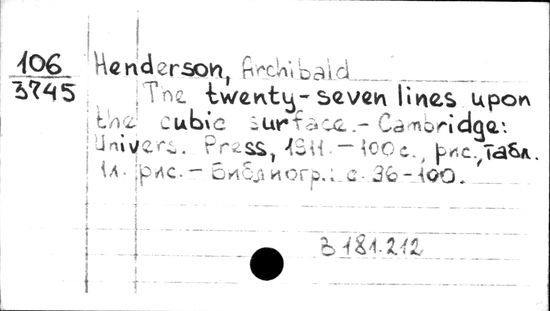 106
3745
Henderson, Archibald
The twenty-seven lines upon
the cubic surface.- Cambridge:
Univers. Press, 1911.-100с., рис., табл.
1л. рис.- Библиогр.: с. 96-100.
В 181.212